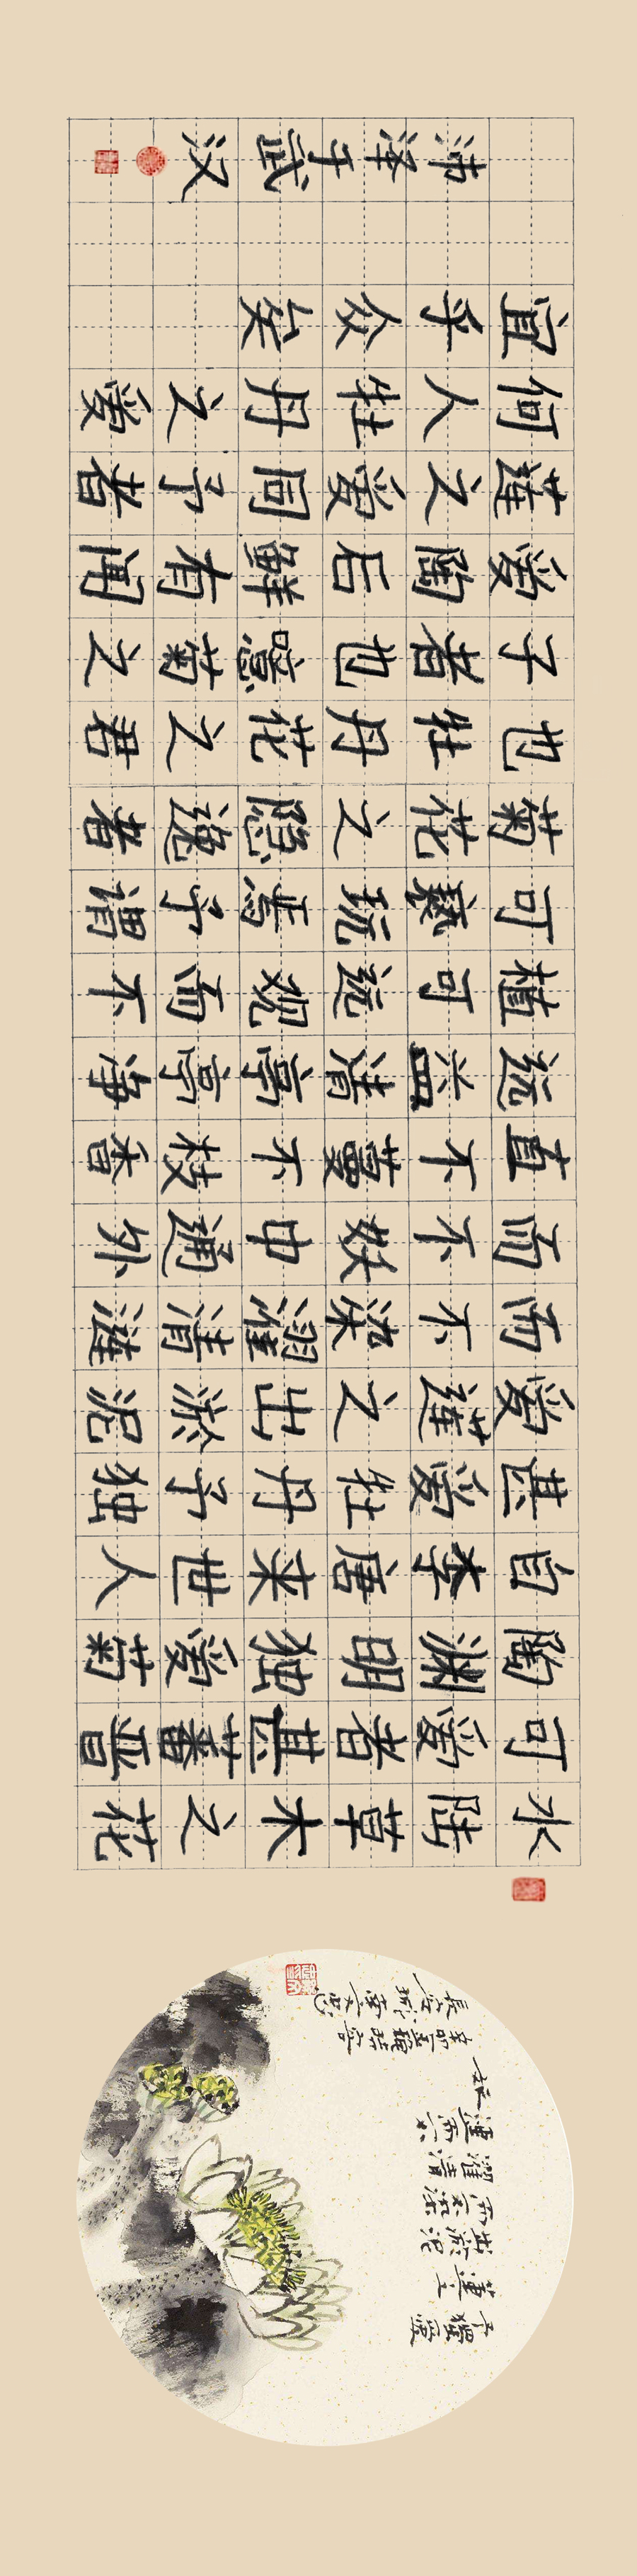 水陆草木之花
可爱者甚蕃晋
陶渊明独爱菊
自李唐来世人
甚爱牡丹予独
爱莲之出淤泥
而不染濯清涟
而不妖中通外
直不蔓不枝香
远益清亭亭净
植可远观而不
可亵玩焉予谓
菊花之隐逸者
也牡丹花之君
子者也噫菊之
爱陶后鲜有闻
莲之爱同予者
何人牡丹之爱
宜乎众矣
沛泽于武汉
予獨愛
蓮之
出淤泥
而不染
濯清
漣而不
妖